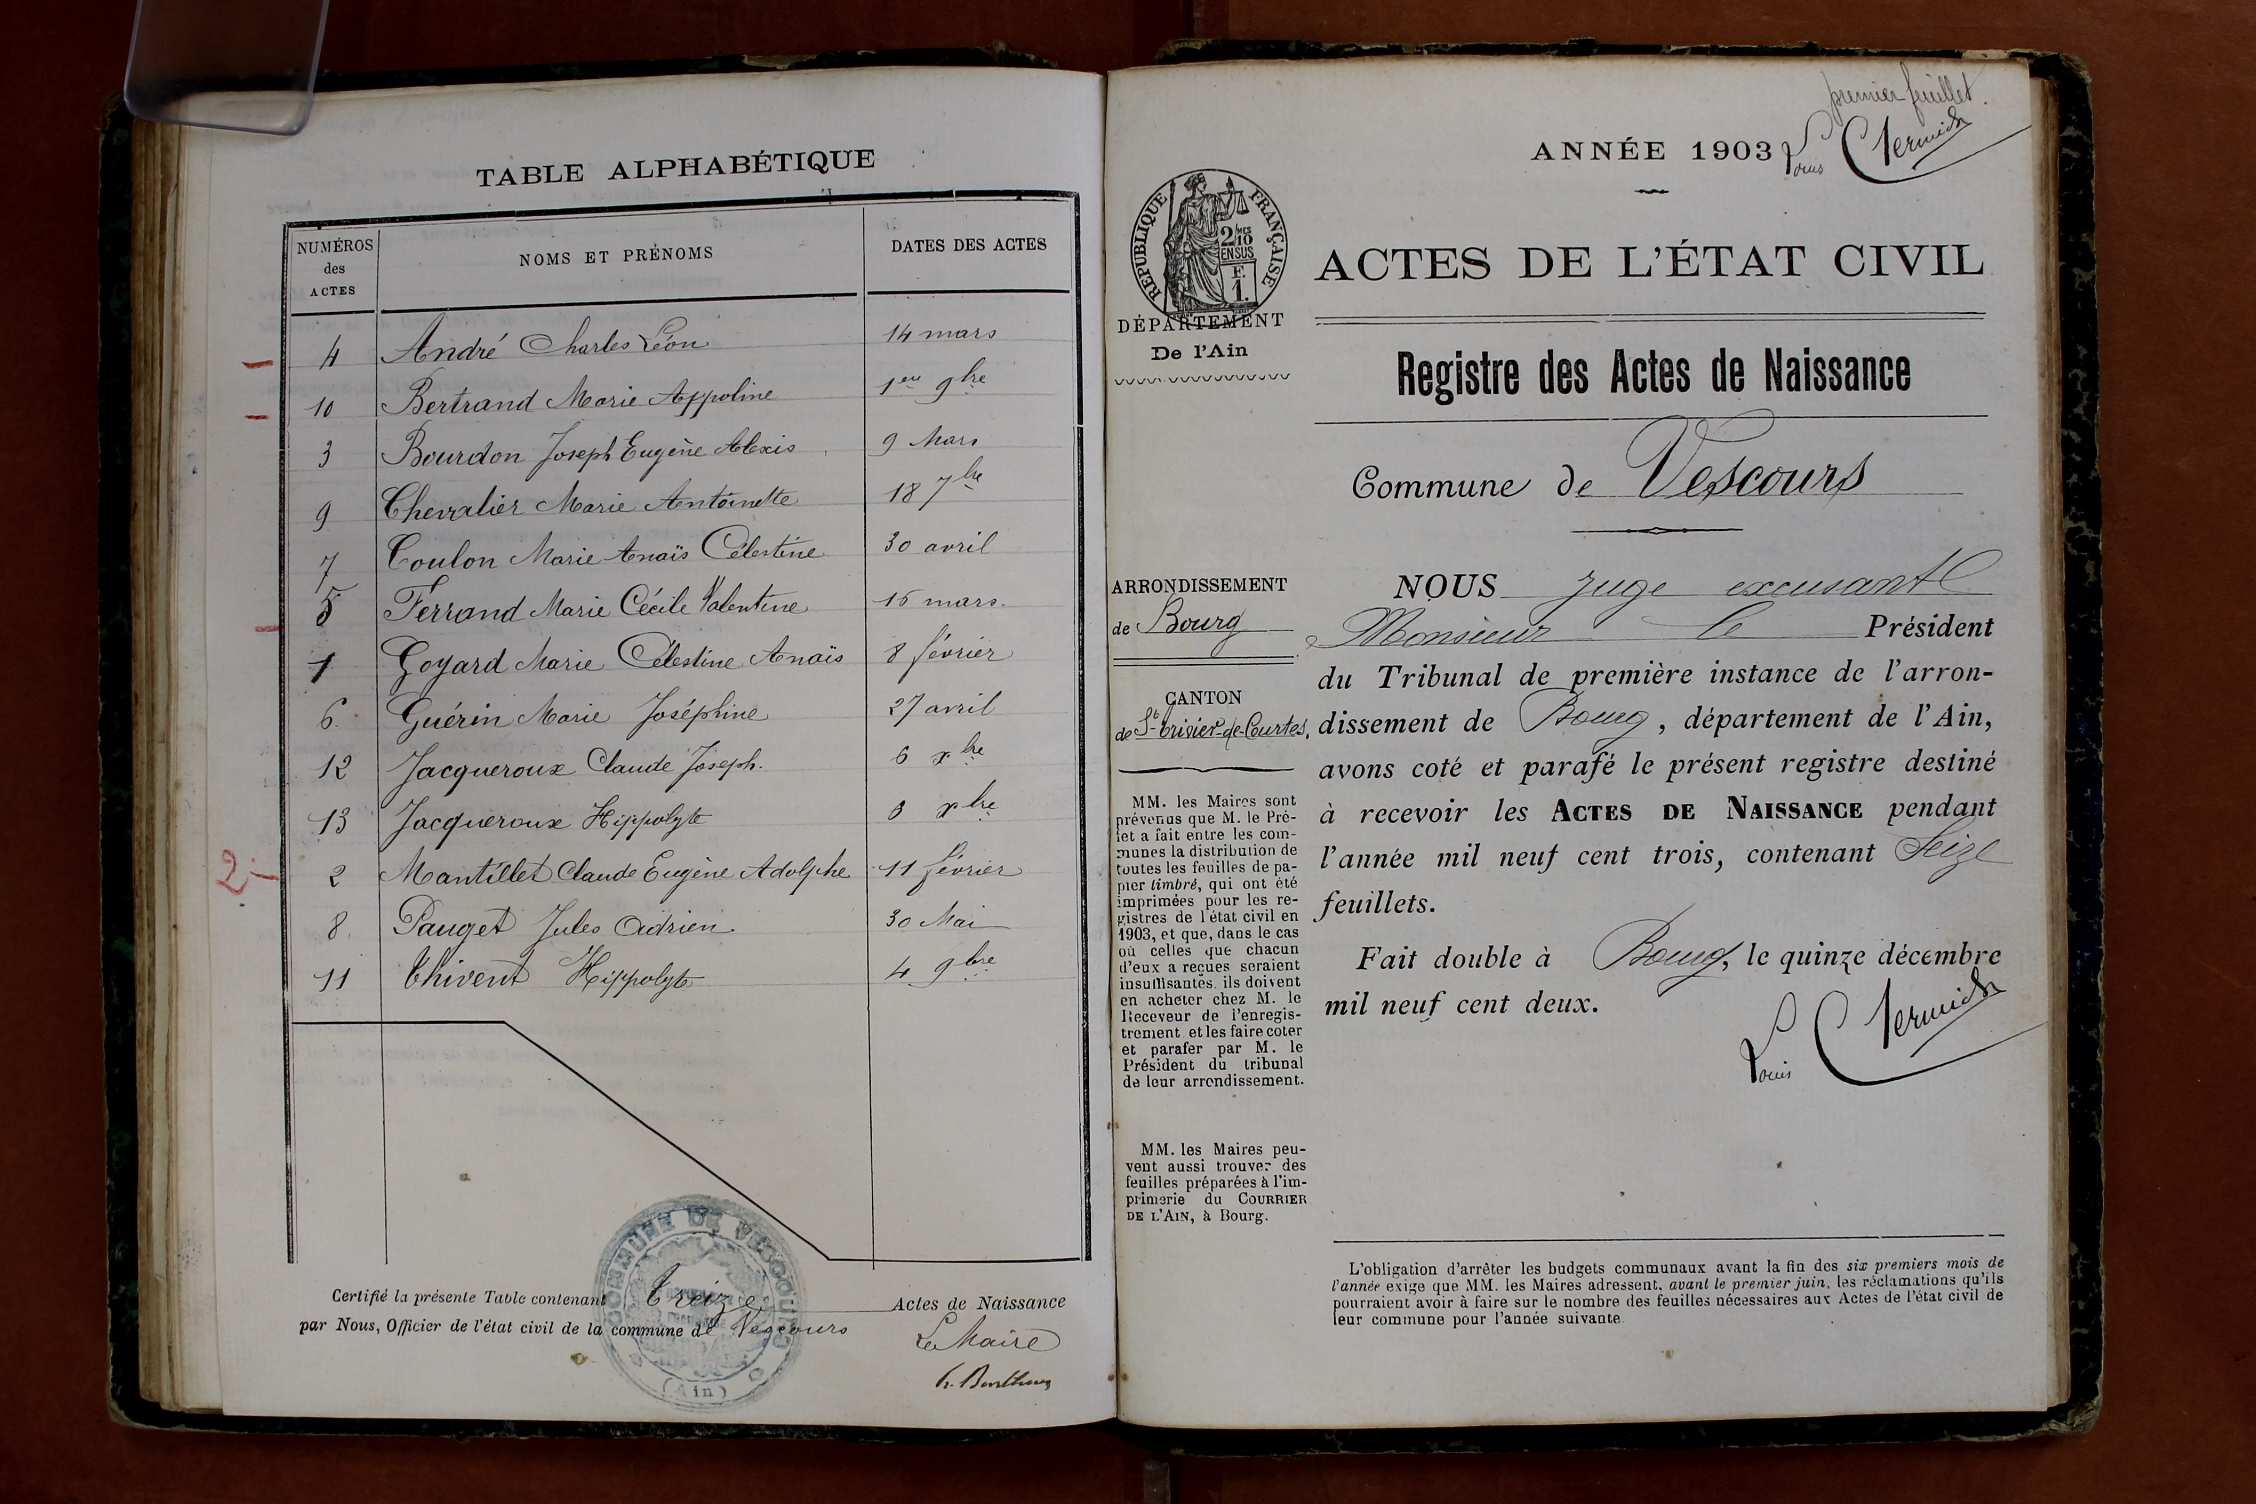 TABLE ALPHABÉTIQUE
NUMÉROS des ACTES
NOMS ET PRÉNOMS
DATES DES ACTES
4 André Charles Léon 14 mars
10 Bertrand Marie Appoline 1er 9bre
3 Bourdon Joseph Eugène Alexis 9 Mars
9 Chevalier Marie Antoinette 18 7bre
7 Coulon Marie Anaïs Célestine 30 avril
5 Ferrand Marie Cécile Valentine 15 mars
1 Goyard Marie Célestine Anaïs 8 février
6 Guérin Marie Joséphine 27 avril
12 Jacqueroux Claude Joseph. 6 xbre
13 Jacqueroux Hippolyte xbre
2 2 Mantillet Claude Eugène Adolphe 11 février
8 Pauget Jules Adrien 30 Mai
11 Thivent Hippolyte 4 9bre
Certifié la présente Table contenant Treize Actes de Naissance
par Nous, Officier de l'état civil de la commune de Vescours
Le Maire
COMMUNE DE VESCOURS
(Ain)
premier feuillet.
ANNÉE 1903
Louis
RÉPUBLIQUE FRANÇAISE
2 MES
10
EN SUS
F.
1.
ACTES DE L'ÉTAT CIVIL
DÉPARTEMENT
De l'Ain
Registre des Actes de Naissance
Commune de Vescours
ARRONDISSEMENT
de Bourg
CANTON
de St Trivier-de-Courtes,
MM. les Maires sont
prévenus que M. le Pré-
fet a fait entre les com-
munes la distribution de
toutes les feuilles de pa-
pier timbré, qui ont été
imprimées pour les re-
gistres de l'état civil en
1903, et que, dans le cas
où celles que chacun
d'eux a reçues seraient
insuffisantes, ils doivent
en acheter chez M. le
Receveur de l'enregis-
trement et les faire coter
et parafer par M. le
Président du tribunal
de leur arrondissement.
MM. les Maires peu-
vent aussi trouver des
feuilles préparées à l'im-
primerie du COURRIER
DE L'AIN, à Bourg.
NOUS juge excusant
Monsieur le Président
du Tribunal de première instance de l'arron-
dissement de Bourg, département de l'Ain,
avons coté et parafé le présent registre destiné
à recevoir les ACTES DE NAISSANCE pendant
l'année mil neuf cent trois, contenant Seize
feuillets.
Fait double à Bourg, le quinze décembre
mil neuf cent deux.
Louis
L'obligation d'arrêter les budgets communaux avant la fin des six premiers mois de
l'année exige que MM. les Maires adressent, avant le premier juin, les réclamations qu'ils
pourraient avoir à faire sur le nombre des feuilles nécessaires aux Actes de l'état civil de
leur commune pour l'année suivante.